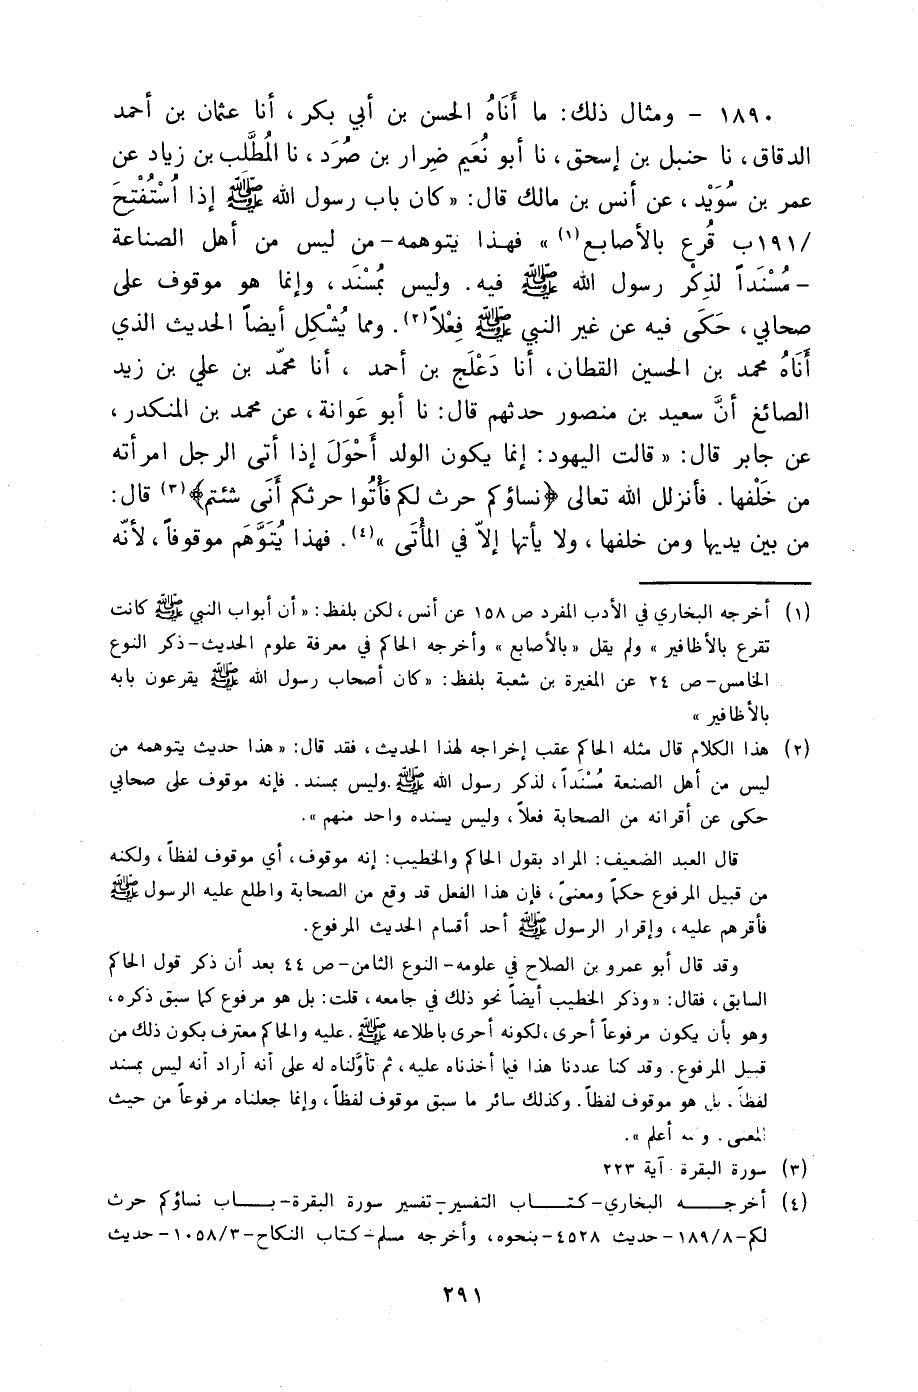 ١٨٩٠ - ومثال ذلك: ما أَنَاهُ الحسن بن أبي بكر، أنا عثمان بن أحمد
الدقاق، نا حنبل بن إسحق، نا أبو نُعَيم ضِرار بن صُرَد، نا المُطَّلب بن زياد عن
عمر بن سُوَيْد، عن أنس بن مالك قال: « كان باب رسول الله ﷺ إذا اُسْتُفْتِحَ
/١٩١ب قُرع بالأصابع(١) » فهـذا يتوهمه-من ليس من أهل الصناعة
-مُسْنَداً لذِكْر رسول الله ﷺ فيه. وليس بمُسْنَد، وإنما هو موقوف على
صحابي، حَكَى فيه عن غير النبي ﷺ فِعْلاً(٢). ومما يُشْكِل أيضاً الحديث الذي
أَنَاهُ محمد بن الحسين القطان، أنا دَعْلَج بن أحمد ، أنا محمّد بن علي بن زيد
الصائغ أنَّ سعيد بن منصور حدثهم قال: نا أبو عَوانة، عن محمد بن المنكدر،
عن جابر قال: « قالت اليهود: إنما يكون الولد أَحْوَلَ إذا أتى الرجل امرأته
من خَلْفها. فأنزلل الله تعالى ﴿نساؤكم حرث لكم فَأْتُوا حرثكم أَنَى شئتم﴾(٣) قال:
من بين يديها ومن خلفها، ولا يأتها إلاّ في المأْتَى »(٤). فهذا يُتَوَهَّم موقوفاً، لأنّه
(١) أخرجه البخاري في الأدب المفرد ص ١٥٨ عن أنس، لكن بلفظ: « أن أبواب النبي ﷺ كانت
تقرع بالأظافير » ولم يقل « بالأصابع » وأخرجه الحاكم في معرفة علوم الحديث-ذكر النوع
الخامس-ص ٢٤ عن المغيرة بن شعبة بلفظ: « كان أصحاب رسول الله ﷺ يقرعون بابه
بالأظافير »
(٢) هذا الكلام قال مثله الحاكم عقب إخراجه لهذا الحديث، فقد قال: « هذا حديث يتوهمه من
ليس من أهل الصنعة مُسْنَداً، لذكر رسول الله ﷺ.وليس بمسند. فإنه موقوف على صحابي
حكى عن أقرانه من الصحابة فعلاً، وليس يسنده واحد منهم ».
قال العبد الضعيف: المراد بقول الحاكم والخطيب: إنه موقوف، أي موقوف لفظاً، ولكنه
من قبيل المرفوع حكماً ومعنىً، فإن هذا الفعل قد وقع من الصحابة واطلع عليه الرسول ﷺ
فأقرهم عليه، وإقرار الرسول ﷺ أحد أقسام الحديث المرفوع.
وقد قال أبو عمرو بن الصلاح في علومه- النوع الثامن-ص ٤٤ بعد أن ذكر قول الحاكم
السابق، فقال: « وذكر الخطيب أيضاً نحو ذلك في جامعه، قلت: بل هو مرفوع كما سبق ذكره،
وهو بأن يكون مرفوعاً أحرى، لكونه أحرى باطلاعه ﷺ.عليه والحاكم معترف بكون ذلك من
قبيل المرفوع. وقد كنا عددنا هذا فيما أخذناه عليه، ثم تأوَّلناه له على أنه أراد أنه ليس بمسند
لفظاً، بل هو موقوف لفظاً. وكذلك سائر ما سبق موقوف لفظاً، وإنما جعلناه مرفوعاً من حيث
المعنى. أعلم ».
(٣) سورة البقرة آية ٢٢٣
(٤) أخرجـــه البخاري-كتـــاب التفسير-تفسير سورة البقرة-بـــاب نساؤكم حرث
لكم-١٨٩/٨-حديث ٤٥٢٨-بنحوه، وأخرجه مسلم-كتاب النكاح-١٠٥٨/٣-حديث
٢٩١